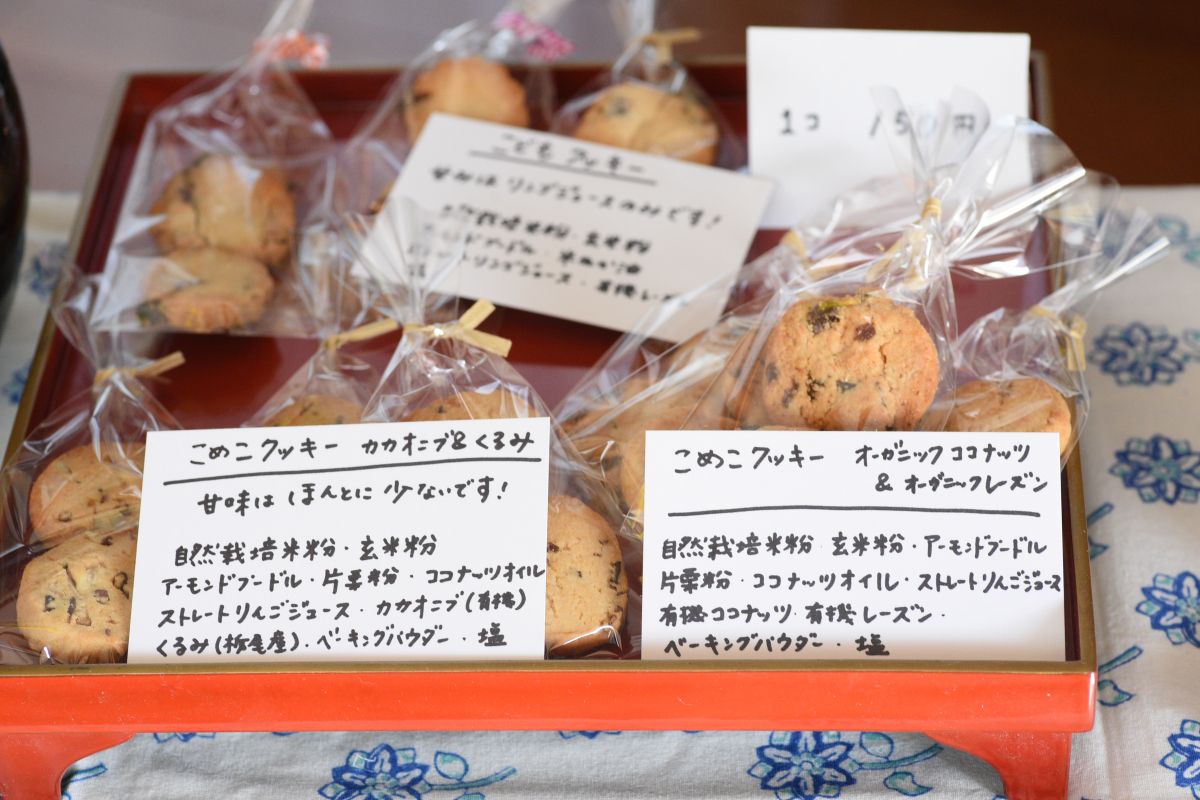 1コ 150円
こどもクッキー
甘みは リンゴジュースのみです!
自然栽培米粉・玄米粉
アーモンドプードル・米ぬか油
ストレートリンゴジュース・有機レーズン
こめこクッキー カカオニブ&くるみ
甘味は ほんとに 少ないです!
自然栽培米粉・玄米粉
アーモンドプードル・片栗粉・ココナッツオイル
ストレートりんごジュース・カカオニブ(有機)
くるみ(栃尾産)・ベーキングパウダー・塩
こめこクッキー オーガニックココナッツ
& オーガニックレーズン
自然栽培米粉 玄米粉・アーモンドプードル
片栗粉・ココナッツオイル・ストレートりんごジュース
有機ココナッツ・有機レーズン・
ベーキングパウダー・塩